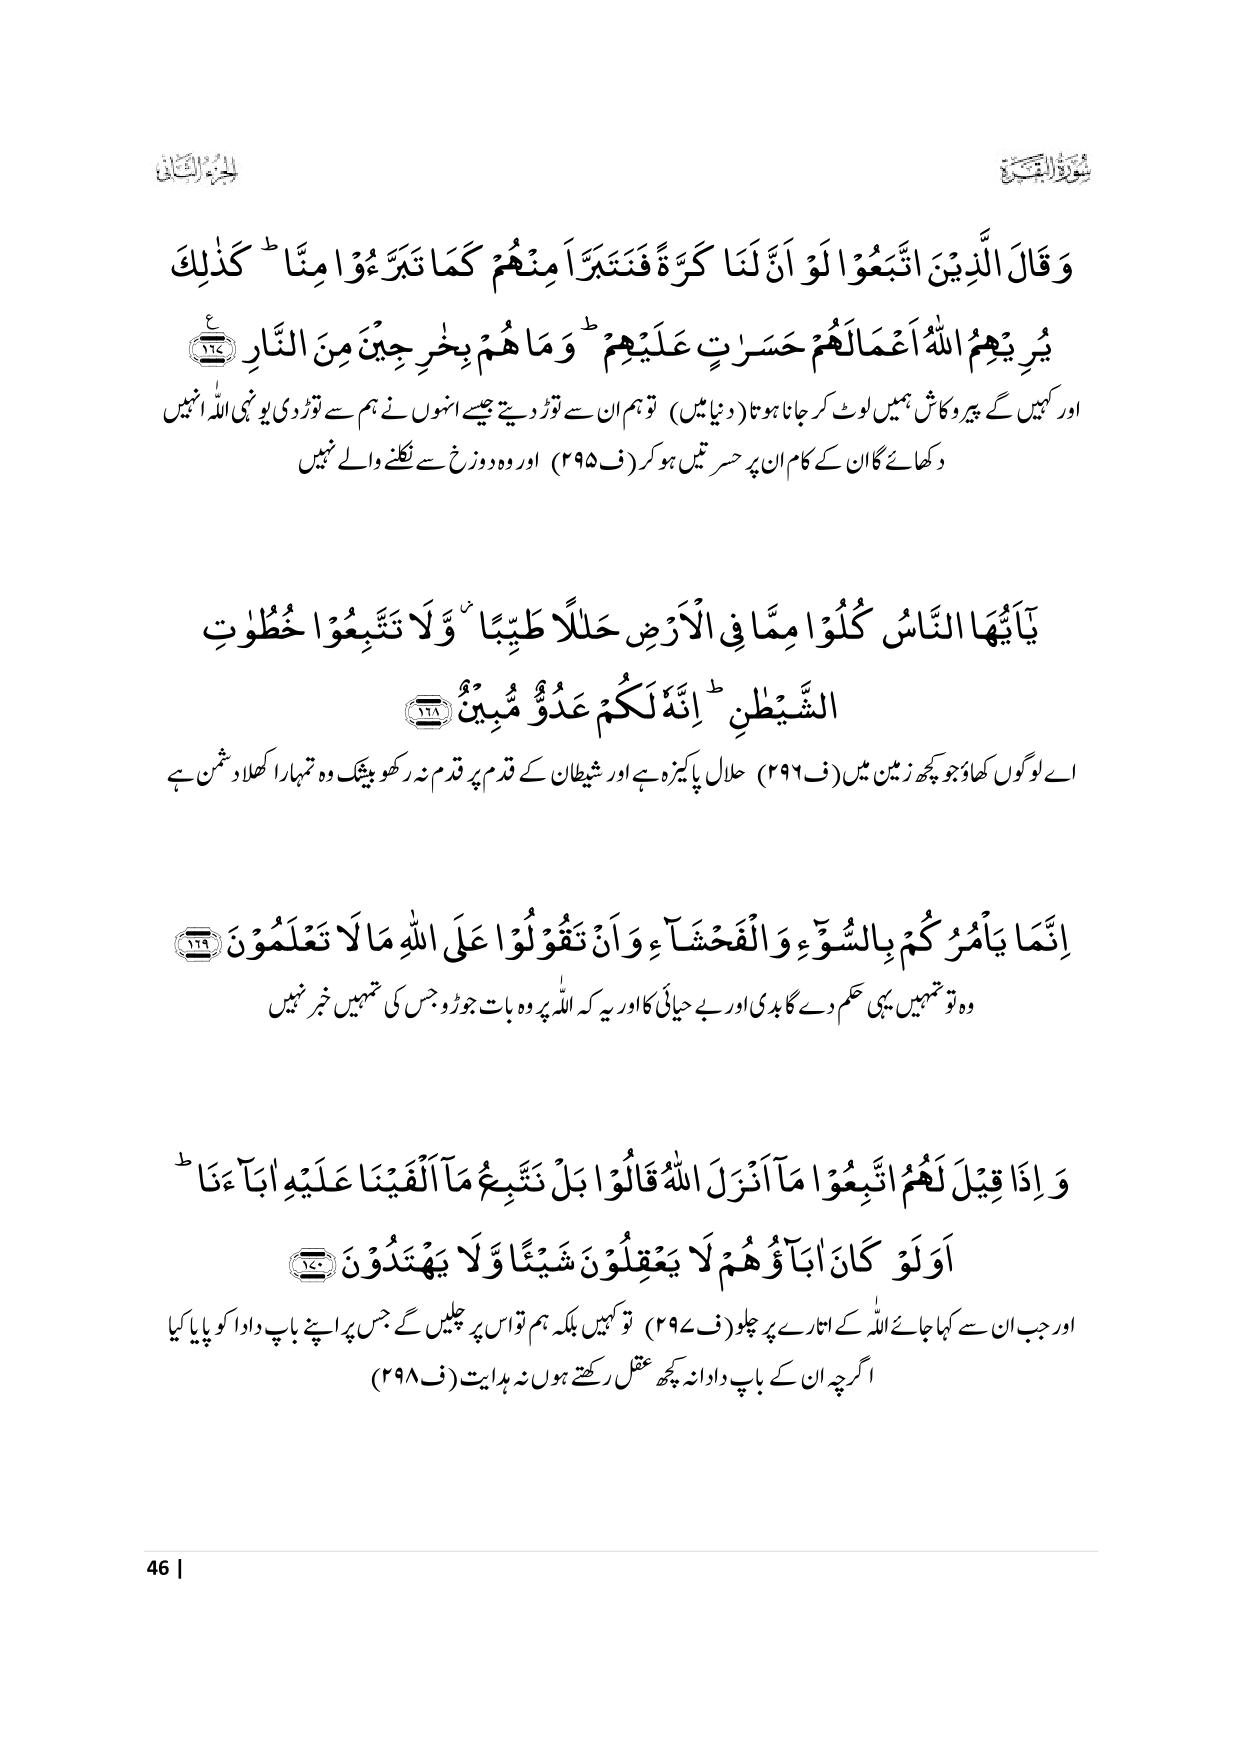 سُوْرَةُ الْبَقَرَة
الجزء الثانی
وَ قَالَ الَّذِيْنَ اتَّبَعُوْا لَوْ اَنَّ لَنَا كَرَّةً فَنَتَبَرَّاَ مِنْهُمْ كَمَا تَبَرَّءُوْا مِنَّا ؕ كَذٰلِكَ
يُرِيْهِمُ اللّٰهُ اَعْمَالَهُمْ حَسَرٰتٍ عَلَيْهِمْ ؕ وَ مَا هُمْ بِخٰرِجِيْنَ مِنَ النَّارِ ﴿۱۶۷﴾ ع
اور کہیں گے پیرو کاش ہمیں لوٹ کر جانا ہوتا (دنیا میں) تو ہم ان سے توڑ دیتے جیسے انہوں نے ہم سے توڑ دی یونہی اللّٰہ انہیں
دکھائے گا ان کے کام ان پر حسرتیں ہو کر (ف۲۹۵) اور وہ دوزخ سے نکلنے والے نہیں
يٰۤاَيُّهَا النَّاسُ كُلُوْا مِمَّا فِی الْاَرْضِ حَلٰلًا طَيِّبًا ۖ٘ وَّ لَا تَتَّبِعُوْا خُطُوٰتِ
الشَّيْطٰنِ ؕ اِنَّهٗ لَكُمْ عَدُوٌّ مُّبِيْنٌ ﴿۱۶۸﴾
اے لوگوں کھاؤ جو کچھ زمین میں (ف۲۹۶) حلال پاکیزہ ہے اور شیطان کے قدم پر قدم نہ رکھو بیشک وہ تمہارا کھلا دشمن ہے
اِنَّمَا يَاْمُرُكُمْ بِالسُّوْٓءِ وَ الْفَحْشَآءِ وَ اَنْ تَقُوْلُوْا عَلَی اللّٰهِ مَا لَا تَعْلَمُوْنَ ﴿۱۶۹﴾
وہ تو تمہیں یہی حکم دے گا بدی اور بے حیائی کا اور یہ کہ اللّٰہ پر وہ بات جوڑو جس کی تمہیں خبر نہیں
وَ اِذَا قِيْلَ لَهُمُ اتَّبِعُوْا مَاۤ اَنْزَلَ اللّٰهُ قَالُوْا بَلْ نَتَّبِعُ مَاۤ اَلْفَيْنَا عَلَيْهِ اٰبَآءَنَا ؕ
اَوَ لَوْ كَانَ اٰبَآؤُهُمْ لَا يَعْقِلُوْنَ شَيْئًا وَّ لَا يَهْتَدُوْنَ ﴿۱۷۰﴾
اور جب ان سے کہا جائے اللّٰہ کے اتارے پر چلو (ف۲۹۷) تو کہیں بلکہ ہم تو اس پر چلیں گے جس پر اپنے باپ دادا کو پایا کیا
اگرچہ ان کے باپ دادا نہ کچھ عقل رکھتے ہوں نہ ہدایت (ف۲۹۸)
46 |